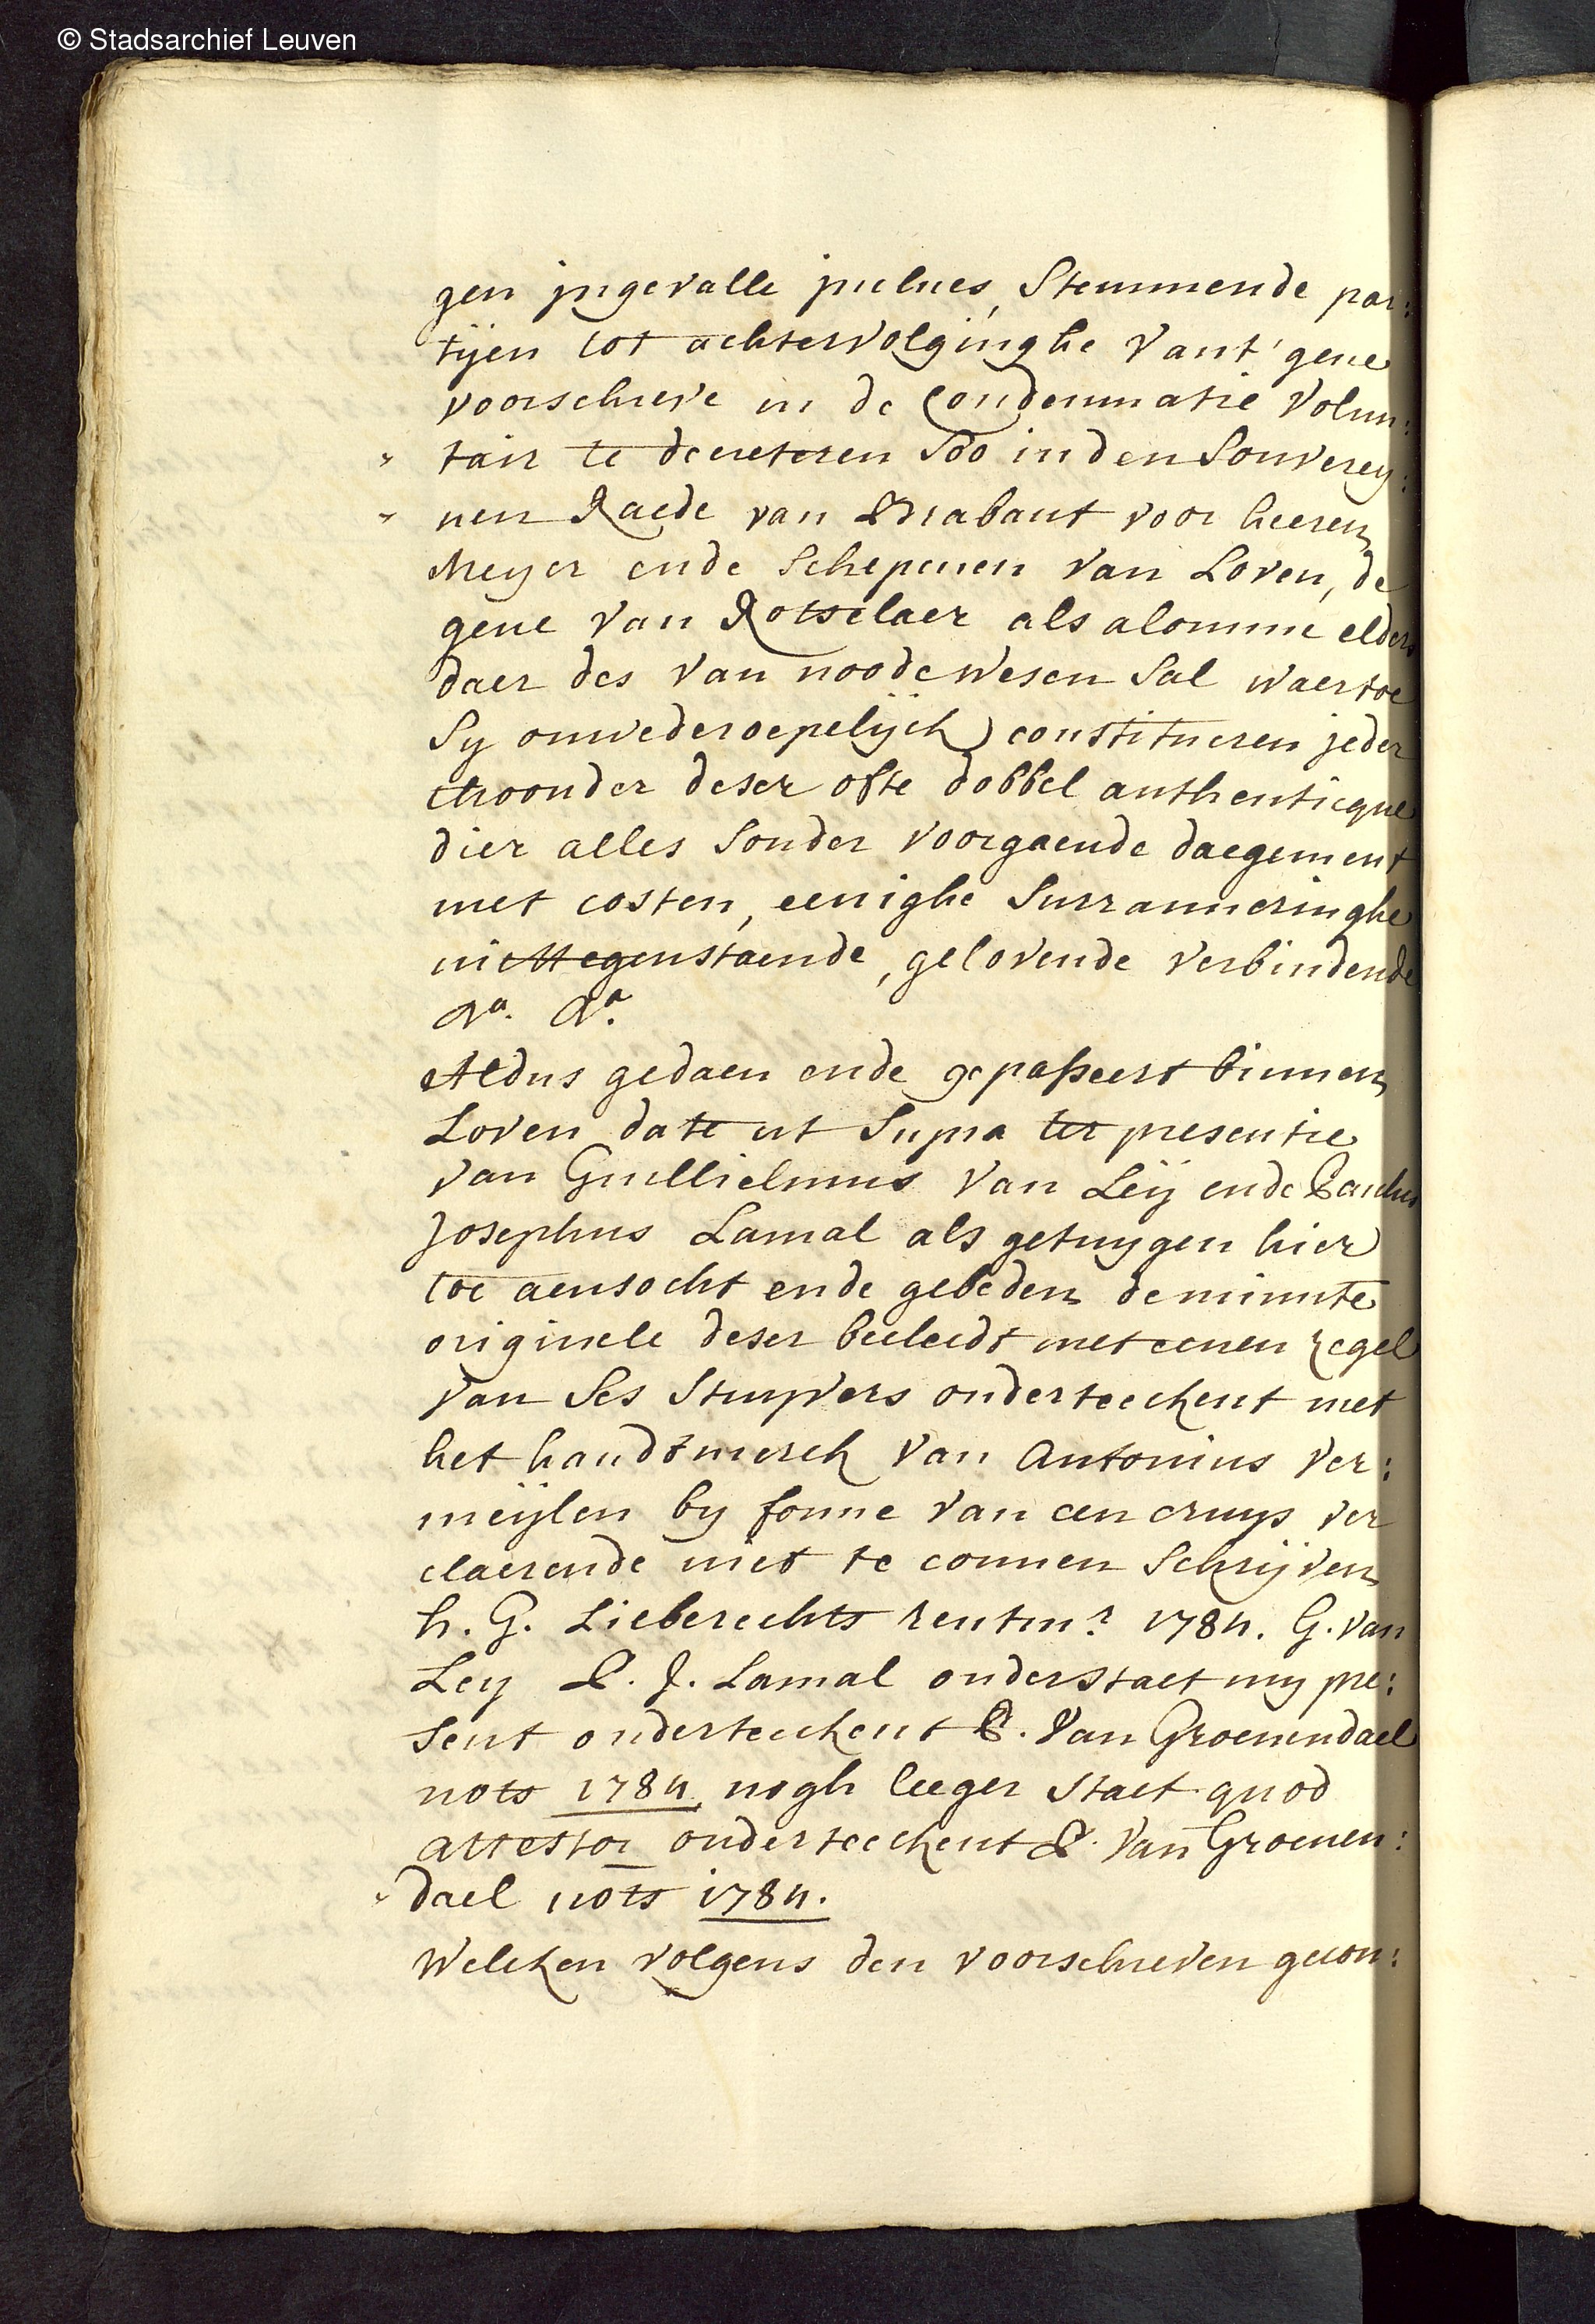 © Stadsarchief Leuven
gen ingevalle incluis, Stemmende par:
tijen tot achtervolginghe vant' gene
voorschreve in de Condemnatie volun:
tair te decreteren Soo in den Souverey:
nen Raede van Brabant voor heeren
Meyer ende Schepenen van Loven, de
gene van Rotselaer als alomme elders
daer des van noode wesen Sal waertoe
Sy onwederoepelijck constitueren jeder
thoonder deser ofte dobbel authenticque
dier alles Sonder voorgaende daegement
met costen, eenighe Surranneringhe
niettegenstaende, gelovende verbindende
Aldus gedaen ende gepasseert binnen
Loven date ut Supra ter presentie
van Guillielmus van Leÿ ende
Josephus Lamal als getuygen hier
toe aensocht ende gebeden de minute
originele deser becleedt met eenen Zegel
van Ses Stuyvers onderteekent met
het handtmerck van Antonius Ver:
meijlen by forme van een cruys ver
claerende niet te connen Schrijven
h. G. Lieberechts rentmr 1784. G. van
Ley P. J. Lamal onderstaet my pre:
Sent onderteekent P. Van Groenendael
nots 1784, nogh leeger Staet quod
attestor onderteekent P. Van Groenen:
dael nots 1784.
Welcken volgens den voorschreven gecon: